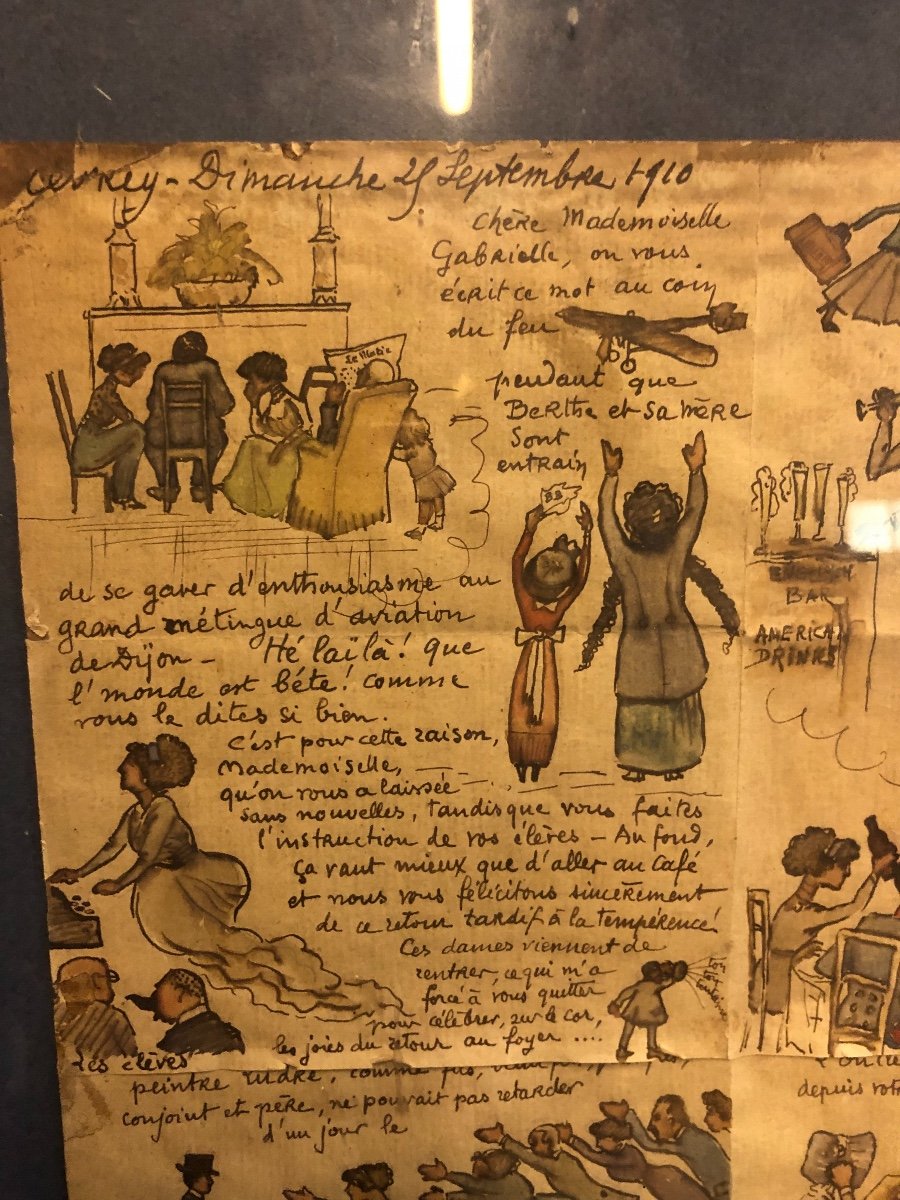 Dimanche 25 Septembre 1910
Chère Mademoiselle
Gabrielle, on vous
écrit ce mot au coin
du feu
Le Matin
pendant que
Berthe et sa mère
sont
entrain
BB
de se gaver d'enthousiasme au
grand métingue d'aviation
de Dijon - Hé laïlà! que
l'monde est bête! comme
vous le dites si bien.
C'est pour cette raison,
Mademoiselle,
qu'on vous a laissée
sans nouvelles, tandis que vous faites
l'instruction de vos élèves - Au fond,
ça vaut mieux que d'aller au café
et nous vous félicitons sincèrement
de ce retour tardif à la tempérence!
Ces dames viennent de
rentrer, ce qui m'a
forcé à vous quitter
pour célébrer, sur le cor,
les joies du retour au foyer ....
Les élèves
peintre comme
conjoint et père, ne pouvait pas retarder
d'un jour le
BAR
AMERICAN
DRINKS
depuis votr